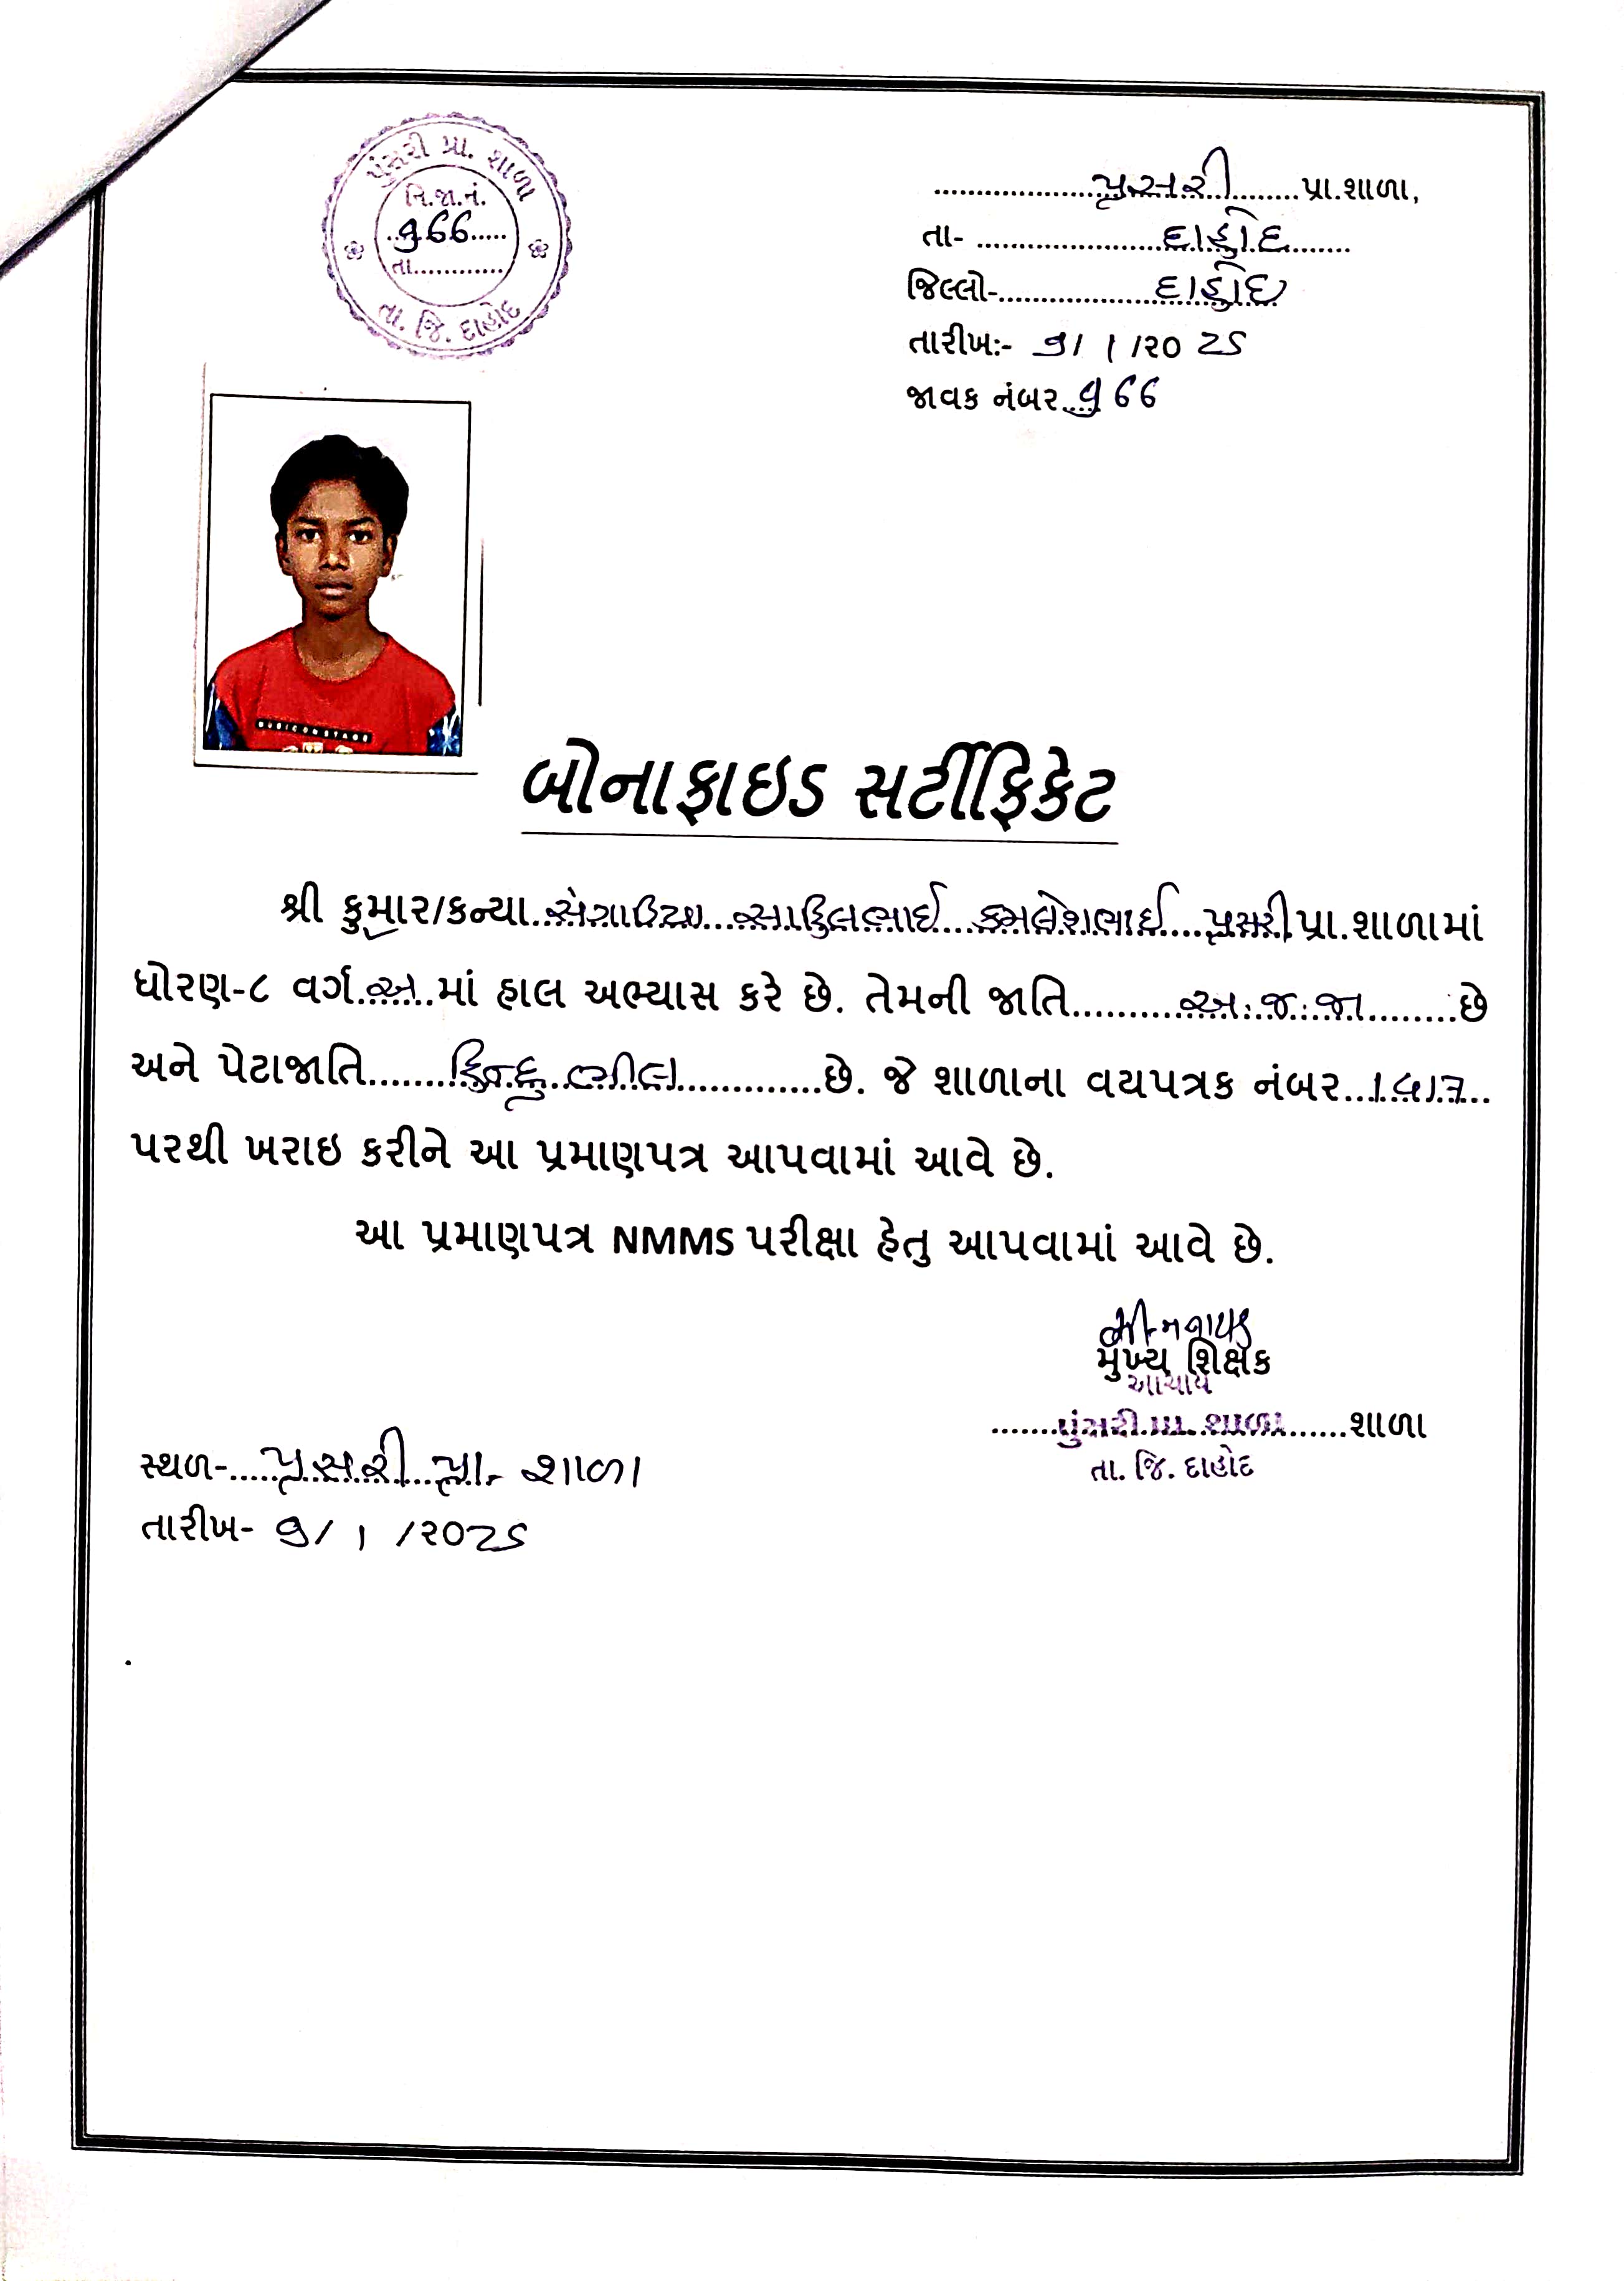 પુંસરી પ્રા. શાળા
વિ.જા.નં.
૧66
તા............
તા. જિ. દાહોદ
પુસરી પ્રા.શાળા,
તા- દાહોદ
જિલ્લો- દાહોદ
તારીખઃ- ૭/ 1 /૨૦ ૨૬
જાવક નંબર ૧66
બોનાફાઇડ સર્ટીફિકેટ
શ્રી કુમાર/કન્યા સંગાડિયા ભાઈ કમલેશભાઈ પુસરી પ્રા.શાળામાં
ધોરણ-૮ વર્ગ અ માં હાલ અભ્યાસ કરે છે. તેમની જાતિ અ.જ.જા છે
અને પેટાજાતિ હિન્દુ ભીલ છે. જે શાળાના વયપત્રક નંબર
પરથી ખરાઇ કરીને આ પ્રમાણપત્ર આપવામાં આવે છે.
આ પ્રમાણપત્ર NMMS પરીક્ષા હેતુ આપવામાં આવે છે.
મુખ્ય શિક્ષક
આચાર્ય
પુંસરી પ્રા. શાળા શાળા
તા. જિ. દાહોદ
સ્થળ- પુસરી પ્રા. શાળા
તારીખ- ૭/ 1 /૨૦૨૬